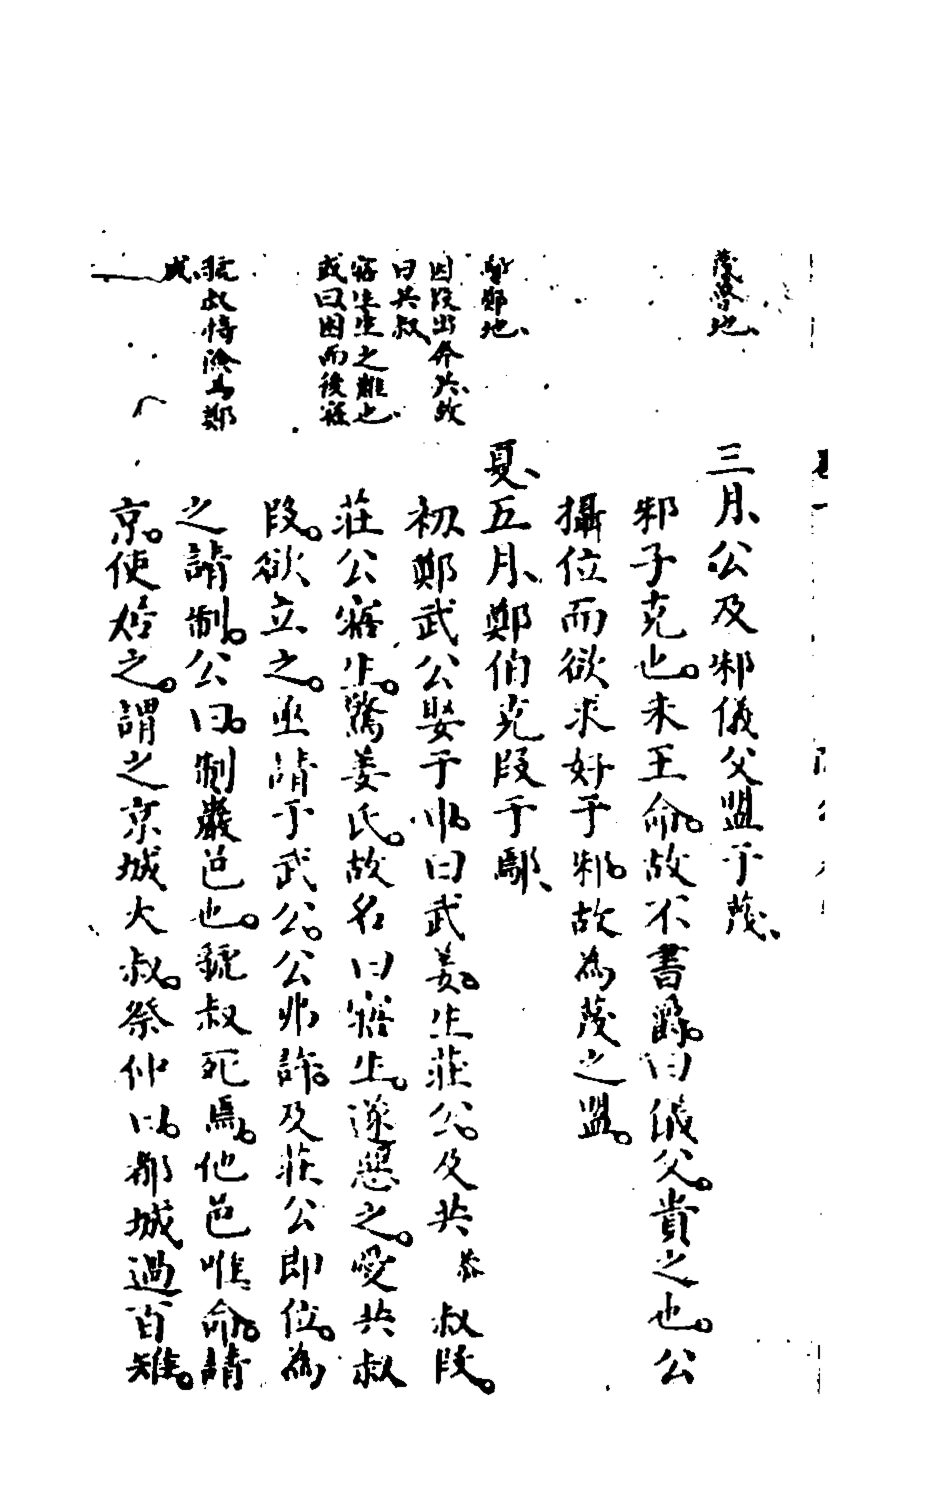 蔑魯地、
三月、公及邾儀父盟于蔑、
邾子克也。未王命。故不書爵。曰儀父。貴之也。公
攝位而欲求好于邾。故為蔑之盟。
鄢鄭地、
夏、五月、鄭伯克段于鄢、
因段出奔共、故
曰共叔、
初鄭武公娶于申。曰武姜。生莊公。及共恭叔段。
寤生生之難也、
或曰因而後寤
莊公寤生。驚姜氏。故名曰寤生。遂惡之。愛共叔
段。欲立之。亟請于武公。公弗許。及莊公即位。為
虢叔恃險為鄭
滅、
之請制。公曰。制巖邑也。虢叔死焉。他邑唯命。請
京。使居之。謂之京城大叔。祭仲曰。都城過百雉。